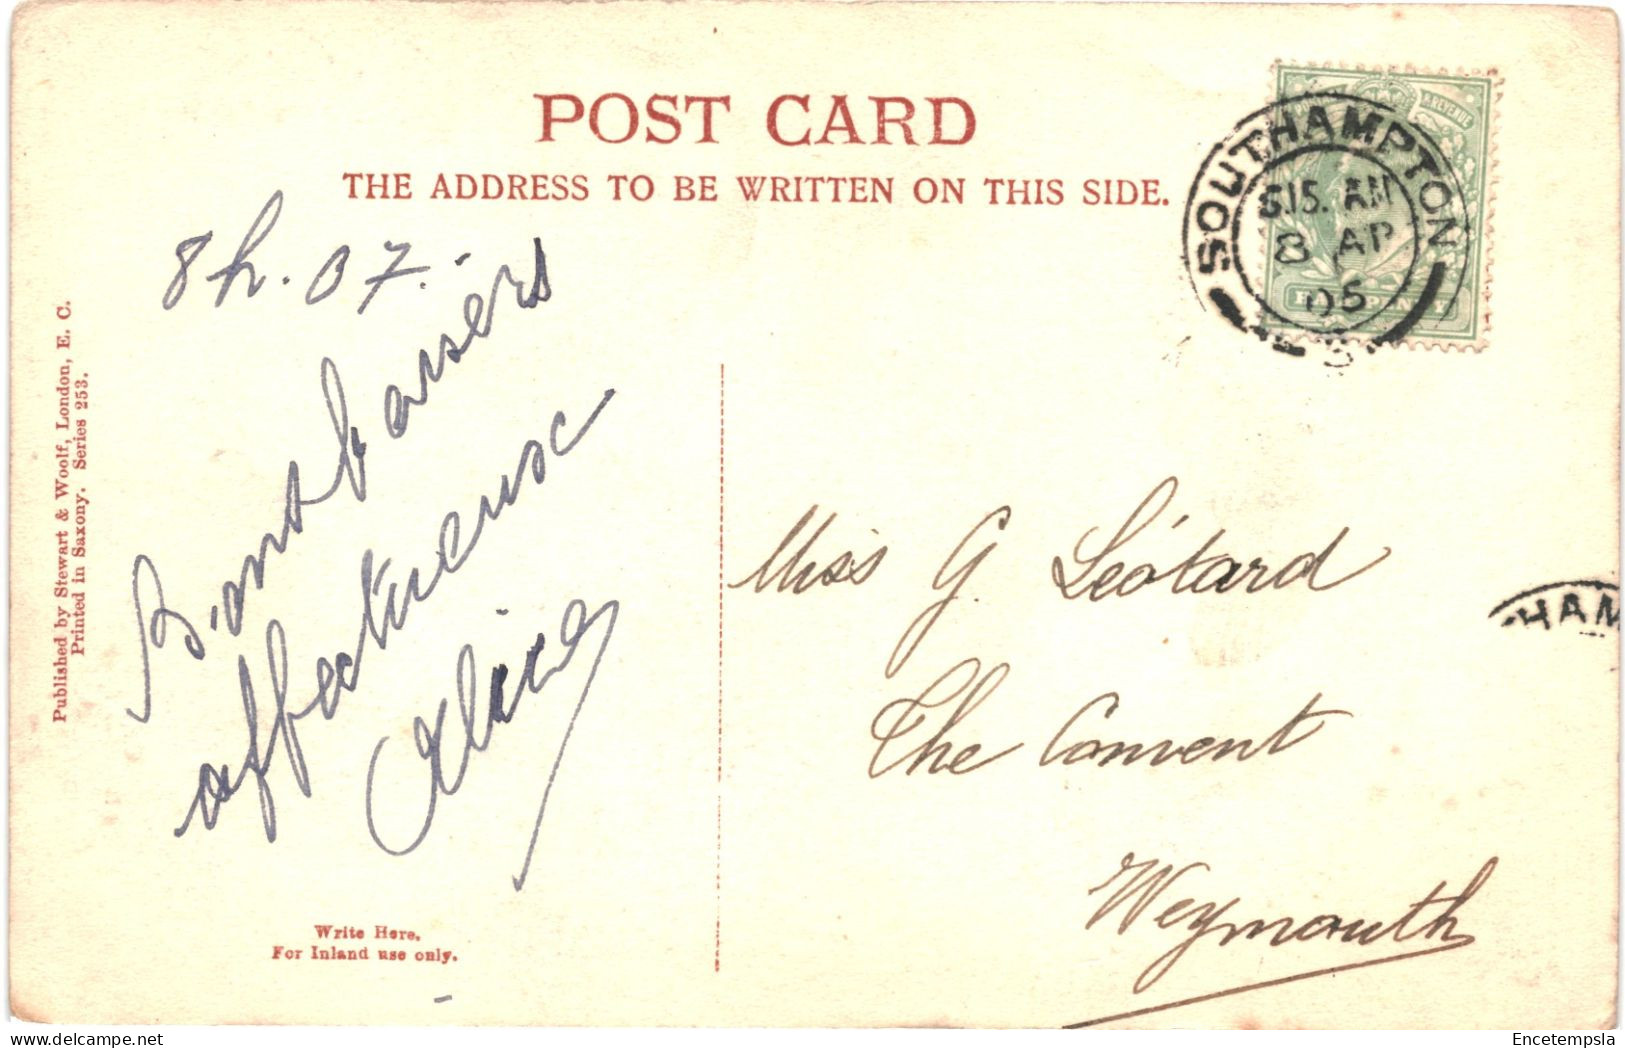 POST CARD
THE ADDRESS TO BE WRITTEN ON THIS SIDE.
SOUTHAMPTON
5.15. AM
8 AP
05
S
& REVENUE
HALFPENNY
8h. 07.
Bons baisers
affectueux
Alice
Miss G. Léotard
The Convent
Weymouth
HAM
Published by Stewart & Woolf, London, E. C.
Printed in Saxony. Series 253.
Write Here.
For Inland use only.
Encetempsla